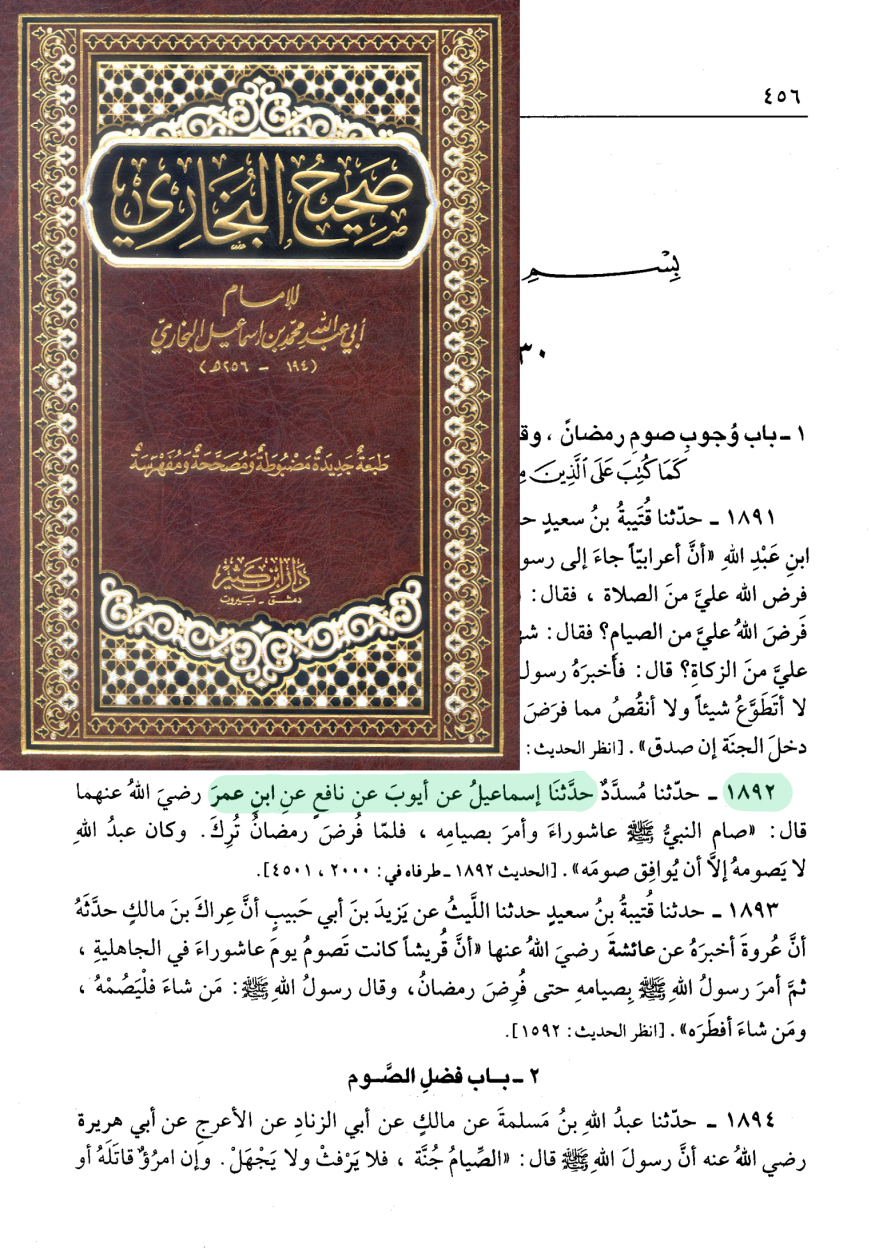 صَحِيحُ البُخَارِي
للإمام
أبي عبد الله محمد بن اسماعيل البخاريّ
(١٩٤ - ٢٥٦هـ)
طَبعَةٌ جَدِيدَةٌ مَضبُوطَةٌ وَمُصَحَّحَةٌ وَمُفَهْرَسَةٌ
دار ابن كثير
دمشق - بيروت
٤٥٦
بِسْمِ
٣٠
١ - باب وُجوبِ صومِ رمضانَ ، وق
كَمَا كُتِبَ عَلَى الَّذِينَ مِ
١٨٩١ - حدّثنا قُتَيبةُ بنُ سعيدٍ ح
ابنِ عَبْدِ اللهِ «أنَّ أعرابيّاً جاءَ إلى رسو
فرض الله عليَّ منَ الصلاة ، فقال :
فَرضَ اللهُ عليَّ من الصيامِ؟ فقال : شه
عليَّ منَ الزكاةِ؟ قال : فأخبرَهُ رسول
لا أتَطَوَّعُ شيئاً ولا أنقُصُ مما فرَضَ
دخلَ الجنةَ إن صدق» . [انظر الحديث :
١٨٩٢ - حدّثنا مُسدَّدٌ حدَّثنَا إسماعيلُ عن أيوبَ عن نافعٍ عنِ ابنِ عمرَ رضيَ اللهُ عنهما
قال : «صام النبيُّ ﷺ عاشوراءَ وأمرَ بصيامِه ، فلمّا فُرضَ رمضانُ تُرِكَ . وكان عبدُ اللهِ
لا يَصومهُ إلَّا أن يُوافِق صومَه» . [الحديث ١٨٩٢ - طرفاه في : ٢٠٠٠ ، ٤٥٠١].
١٨٩٣ - حدثنا قُتيبةُ بنُ سعيدٍ حدثنا اللَّيثُ عن يَزيدَ بنَ أبي حَبيبٍ أنَّ عِراكَ بنَ مالكٍ حدَّثَهُ
أنَّ عُروةَ أخبرَهُ عن عائشةَ رضيَ اللهُ عنها «أنَّ قُريشاً كانت تَصومُ يومَ عاشوراءَ في الجاهليةِ ،
ثمَّ أمرَ رسولُ اللهِ ﷺ بِصيامهِ حتى فُرِضَ رمضانُ، وقال رسولُ اللهِ ﷺ : مَن شاءَ فلْيَصُمْهُ ،
ومَن شاءَ أفطَرَه» . [انظر الحديث : ١٥٩٢].
٢ - بـاب فضلِ الصَّـوم
١٨٩٤ - حدّثنا عبدُ اللهِ بنُ مَسلمةَ عن مالكٍ عن أبي الزنادِ عن الأعرجِ عن أبي هريرة
رضي اللهُ عنه أنَّ رسولَ اللهِ ﷺ قال : «الصِّيامُ جُنَّة ، فلا يَرْفثْ ولا يَجْهَلْ . وإن امرُؤٌ قاتَلَهُ أو